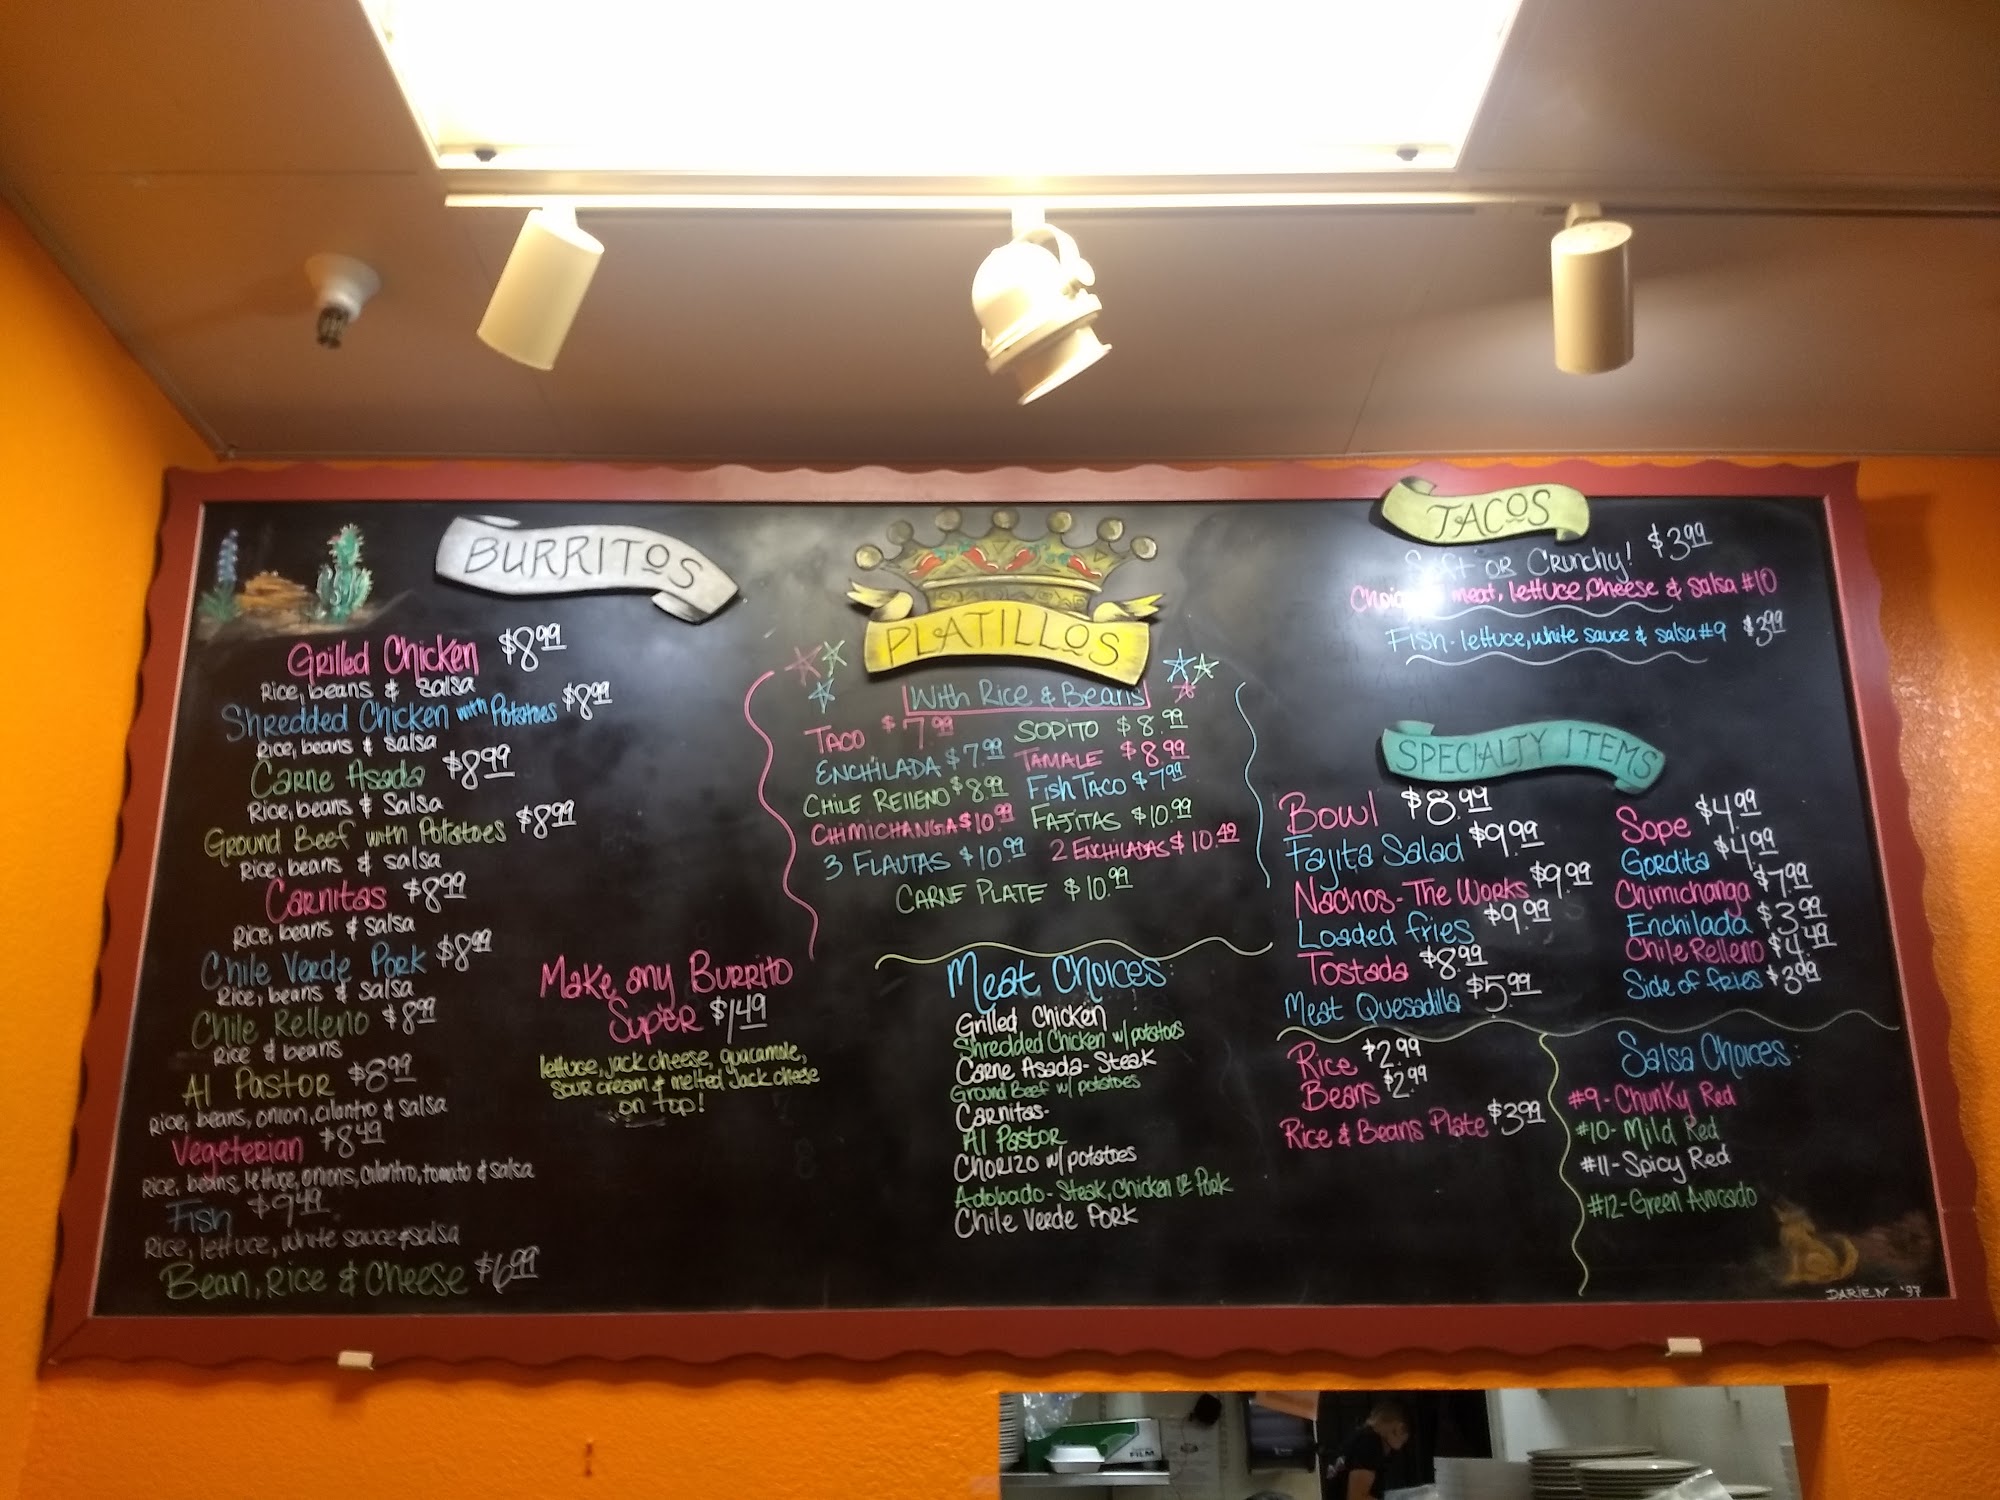 BURRITOS
Grilled Chicken $8.99
Rice, beans & salsa
Shredded Chicken with Potatoes $8.99
Rice, beans & salsa
Carne Asada $8.99
Rice, beans & Salsa
Ground Beef with Potatoes $8.99
Rice, beans & salsa
Carnitas $8.99
Rice, beans & salsa
Chile Verde Pork $8.99
Rice, beans & salsa
Chile Relleno $8.99
Rice & beans
Al Pastor $8.99
Rice, beans, onion, cilantro & salsa
Vegeterian $8.49
Rice, beans, lettuce, onions, cilantro, tomato & salsa
Fish $9.49
Rice, lettuce, white sauce & salsa
Bean, Rice & Cheese $6.99
Make any Burrito
Super $1.49
lettuce, jack cheese, guacamole,
sour cream & melted Jack cheese
on top!
PLATILLOS
With Rice & Beans
TACO $7.99 SOPITO $8.99
ENCHILADA $7.99 TAMALE $8.99
CHILE RELLENO $8.99 FISH TACO $7.99
CHIMICHANGA $10.99 FAJITAS $10.99
3 FLAUTAS $10.99 2 ENCHILADAS $10.49
CARNE PLATE $10.99
Meat Choices:
Grilled Chicken
Shredded Chicken w/ potatoes
Carne Asada- Steak
Ground Beef w/ potatoes
Carnitas-
Al Pastor
Chorizo w/ potatoes
Adobado- Steak, Chicken or Pork
Chile Verde Pork
TACOS
Soft or Crunchy! $3.99
meat, lettuce, cheese & salsa #10
Fish- lettuce, white sauce & salsa #9 $3.99
SPECIALTY ITEMS
Bowl $8.99
Fajita Salad $9.99
Nachos- The Works $9.99
Loaded fries $9.99
Tostada $8.99
Meat Quesadilla $5.99
Sope $4.99
Gordita $4.99
Chimichanga $7.99
Enchilada $3.99
Chile Relleno $4.49
Side of fries $3.99
Rice $2.99
Beans $2.99
Rice & Beans Plate $3.99
Salsa Choices:
#9- Chunky Red
#10- Mild Red
#11- Spicy Red
#12- Green Avocado
DARIEN '97
FILM